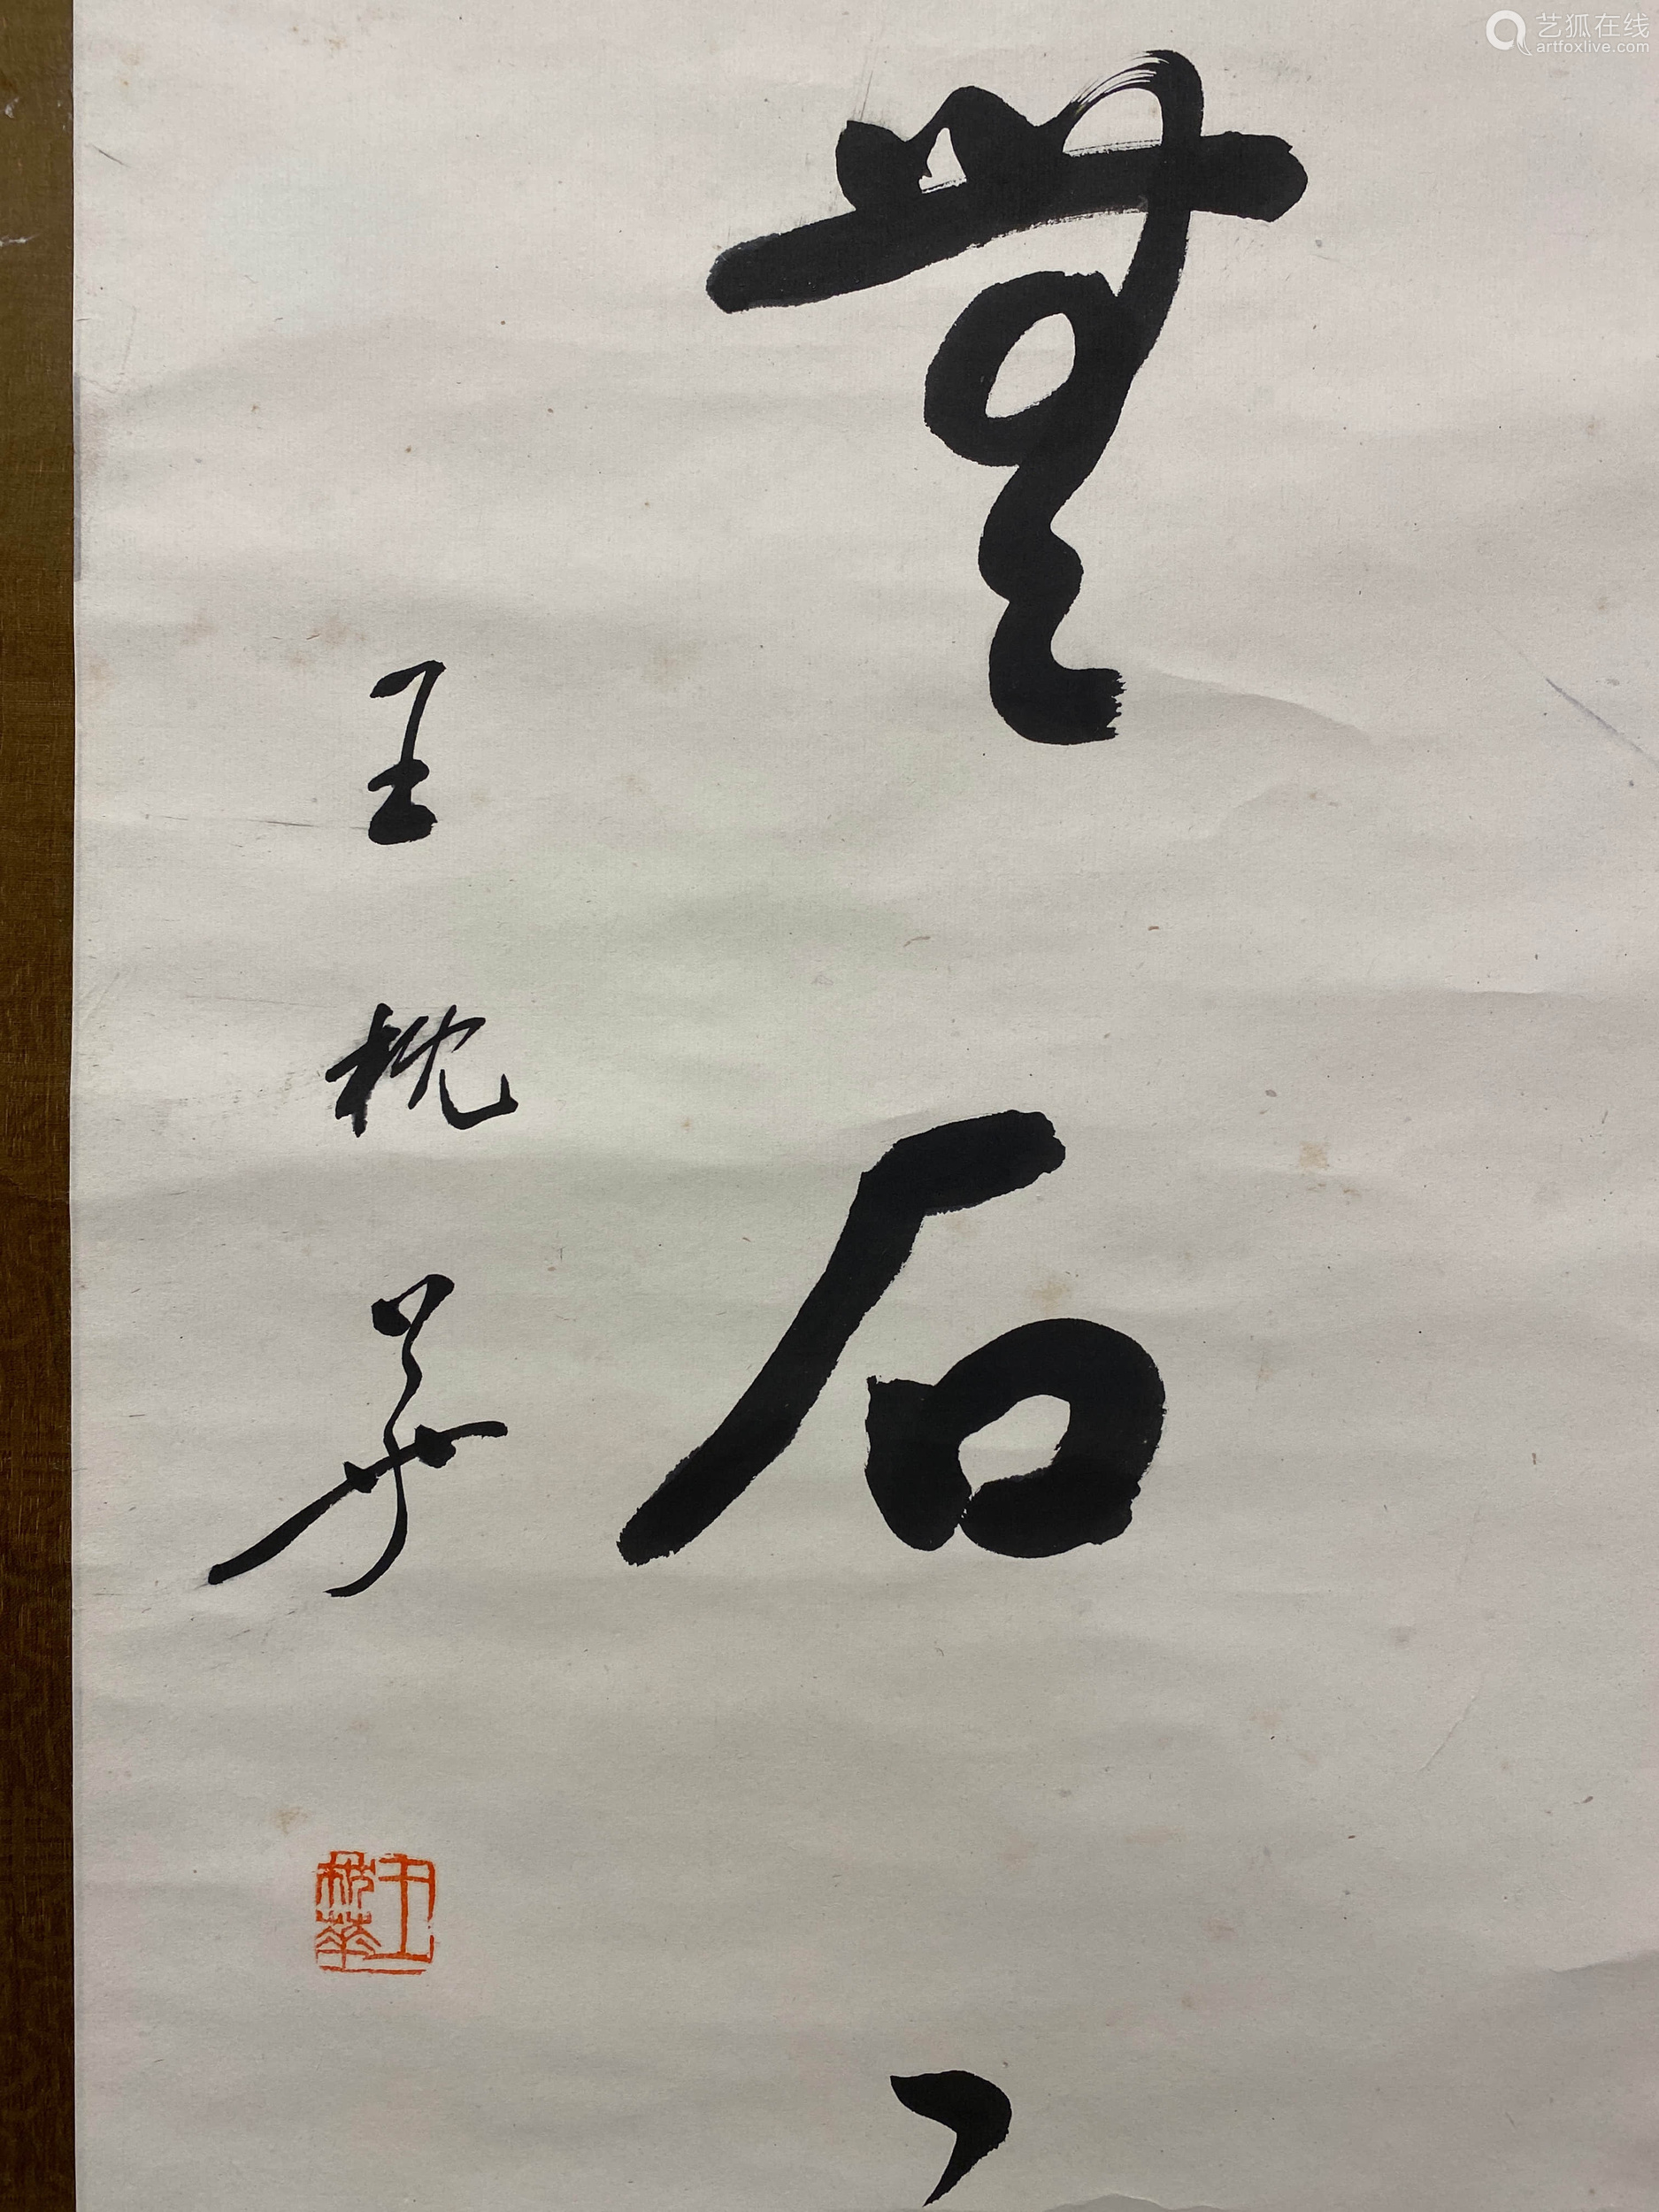 艺狐在线
artfoxlive.com
無石
王枕華
王枕華